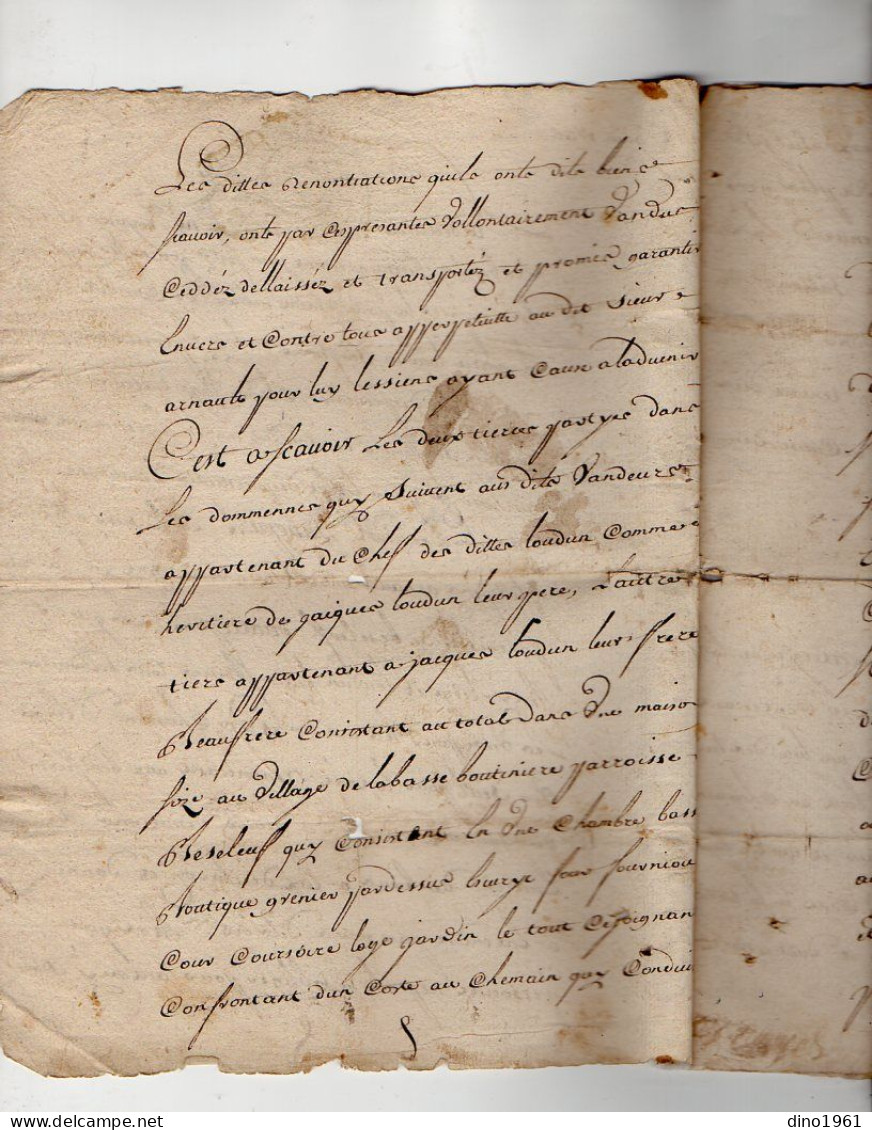 Les dittes Renontiations quils onts dits bien
scavoir, onts par Cespresantes Vollontairement Vandus
Ceddéz dellaisséz et transportéz et promis garantir
Envers et Contre tous apperpetuitté au dit sieur
arnault pour luy lessiens ayant Cause aladvenir
Cest ascavoir Les deux tierces partyes dans
Les dommennes quy suivent aus dits Vandeurs
appartenant du Chef des dittes loudun Comme
heritiere de jaiques loudun leur pere, Lautre
tiers appartenant a jacques loudun leur frere
Beaufrere Consistant au total dans Une maison
size au Village de la basse boutiniere parroisse
Beseleuf quy Consistent En Une Chambre basse
Boutique grenier pardessus four fourniou
Cour Coursoire loge jardin le tout Cejoignan
Confrontant dun Coste au Chemain quy Conduit
dino1961